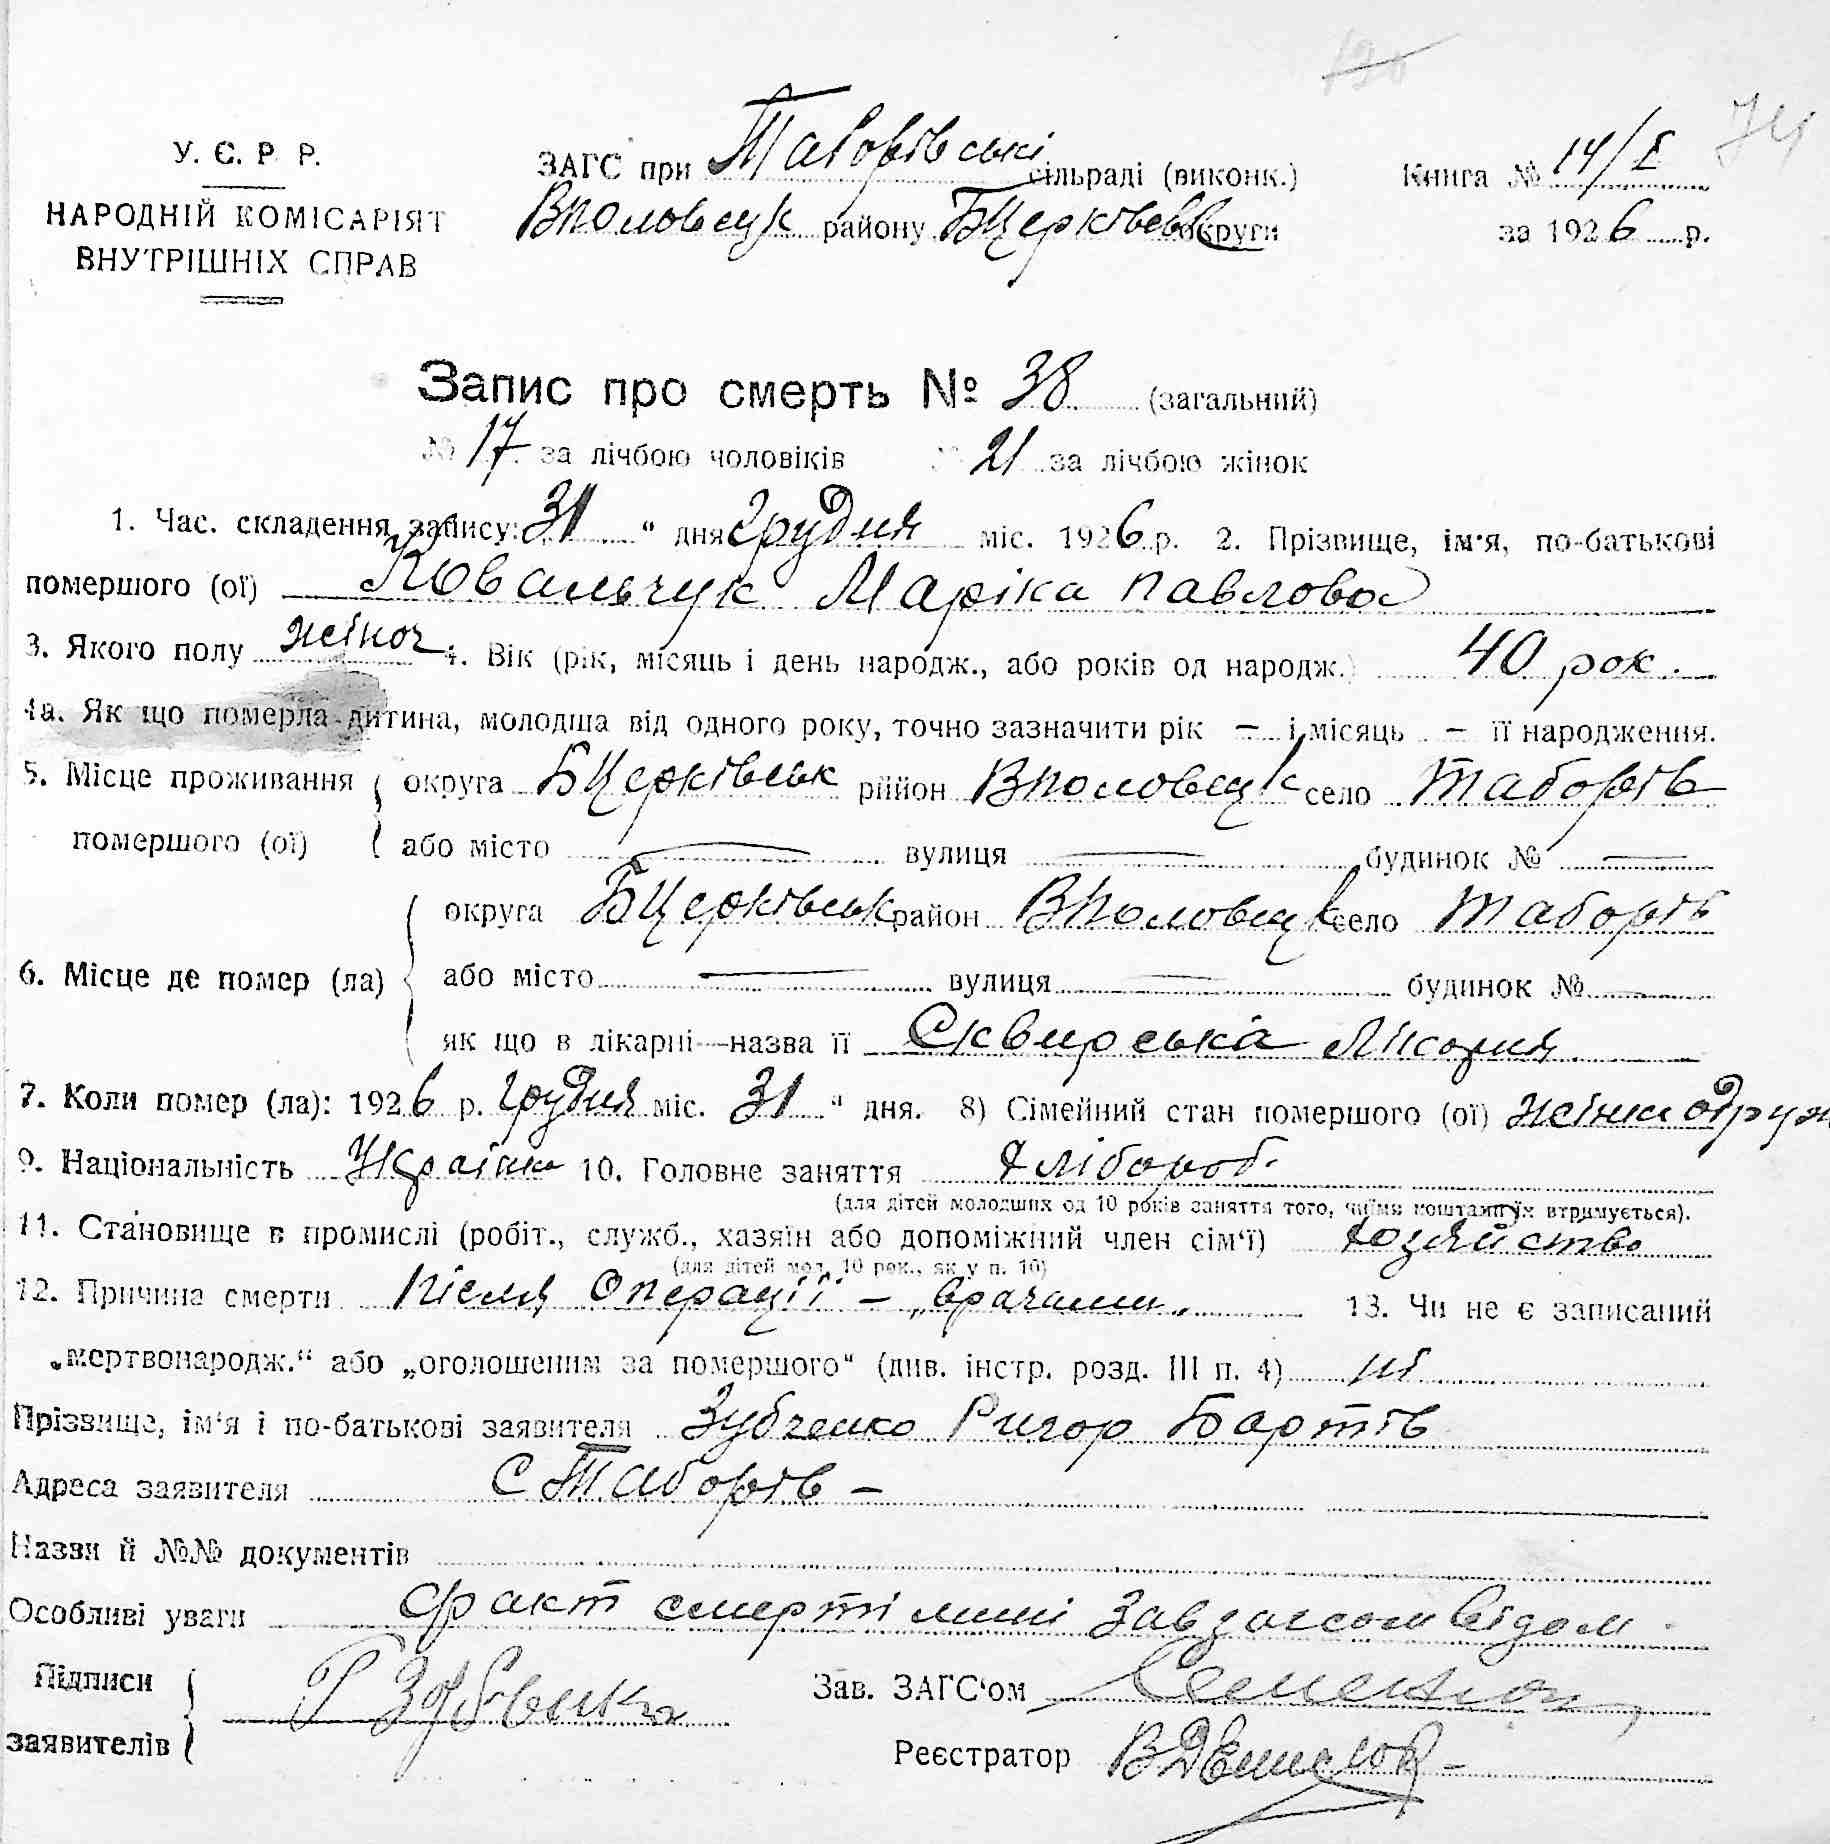 У. С. Р. Р.
НАРОДНІЙ КОМІСАРІЯТ
ВНУТРІШНІХ СПРАВ
ЗАГС при Таборівські сільраді (виконк.)
Вполовецк району БЦерківськ округи
Книга № 14/I
за 1926 р.
74
Запис про смерть № 38 (загальний)
№ 17 за лічбою чоловіків № 21 за лічбою жінок
1. Час. складення запису: 31 " дня Грудня міс. 1926 р. 2. Прізвище, ім'я, по-батькові
помершого (ої) Ковальчук Маріка Павлова
3. Якого полу жіноч 4. Вік (рік, місяць і день народж., або років од народж.) 40 рок.
4а. Як що померла дитина, молодша від одного року, точно зазначити рік — і місяць — її народження.
5. Місце проживання округа БЦерківськ рййон Вполовецк село Таборів
помершого (ої) або місто — вулиця — будинок № —
округа БЦерківськ район Вполовецк село Таборів
6. Місце де помер (ла) або місто — вулиця — будинок № —
як що в лікарні—назва її Сквирська Лікарня
7. Коли помер (ла): 1926 р. Грудня міс. 31 " дня. 8) Сімейний стан помершого (ої) жінка одруж
9. Національність Українка 10. Головне заняття Хлібороб.
(для дітей молодших од 10 років заняття того, чиїми коштами їх втримується).
11. Становище в промислі (робіт., служб., хазяїн або допоміжний член сім'ї) хозяйство
(для дітей мол. 10 рок., як у п. 10)
12. Причина смерти Після Операції — „врачами„ 13. Чи не є записаний
„мертвонародж.“ або „оголошеним за помершого“ (див. інстр. розд. III п. 4) ні
Прізвище, ім'я і по-батькові заявителя Зубченко Ригор Бартів
Адреса заявителя С Таборів —
Назви й №№ документів
Особливі уваги Факт смерті мині Завзагсом відом.
Підписи
заявителів Г Зубченко
Зав. ЗАГС'ом
Реєстратор